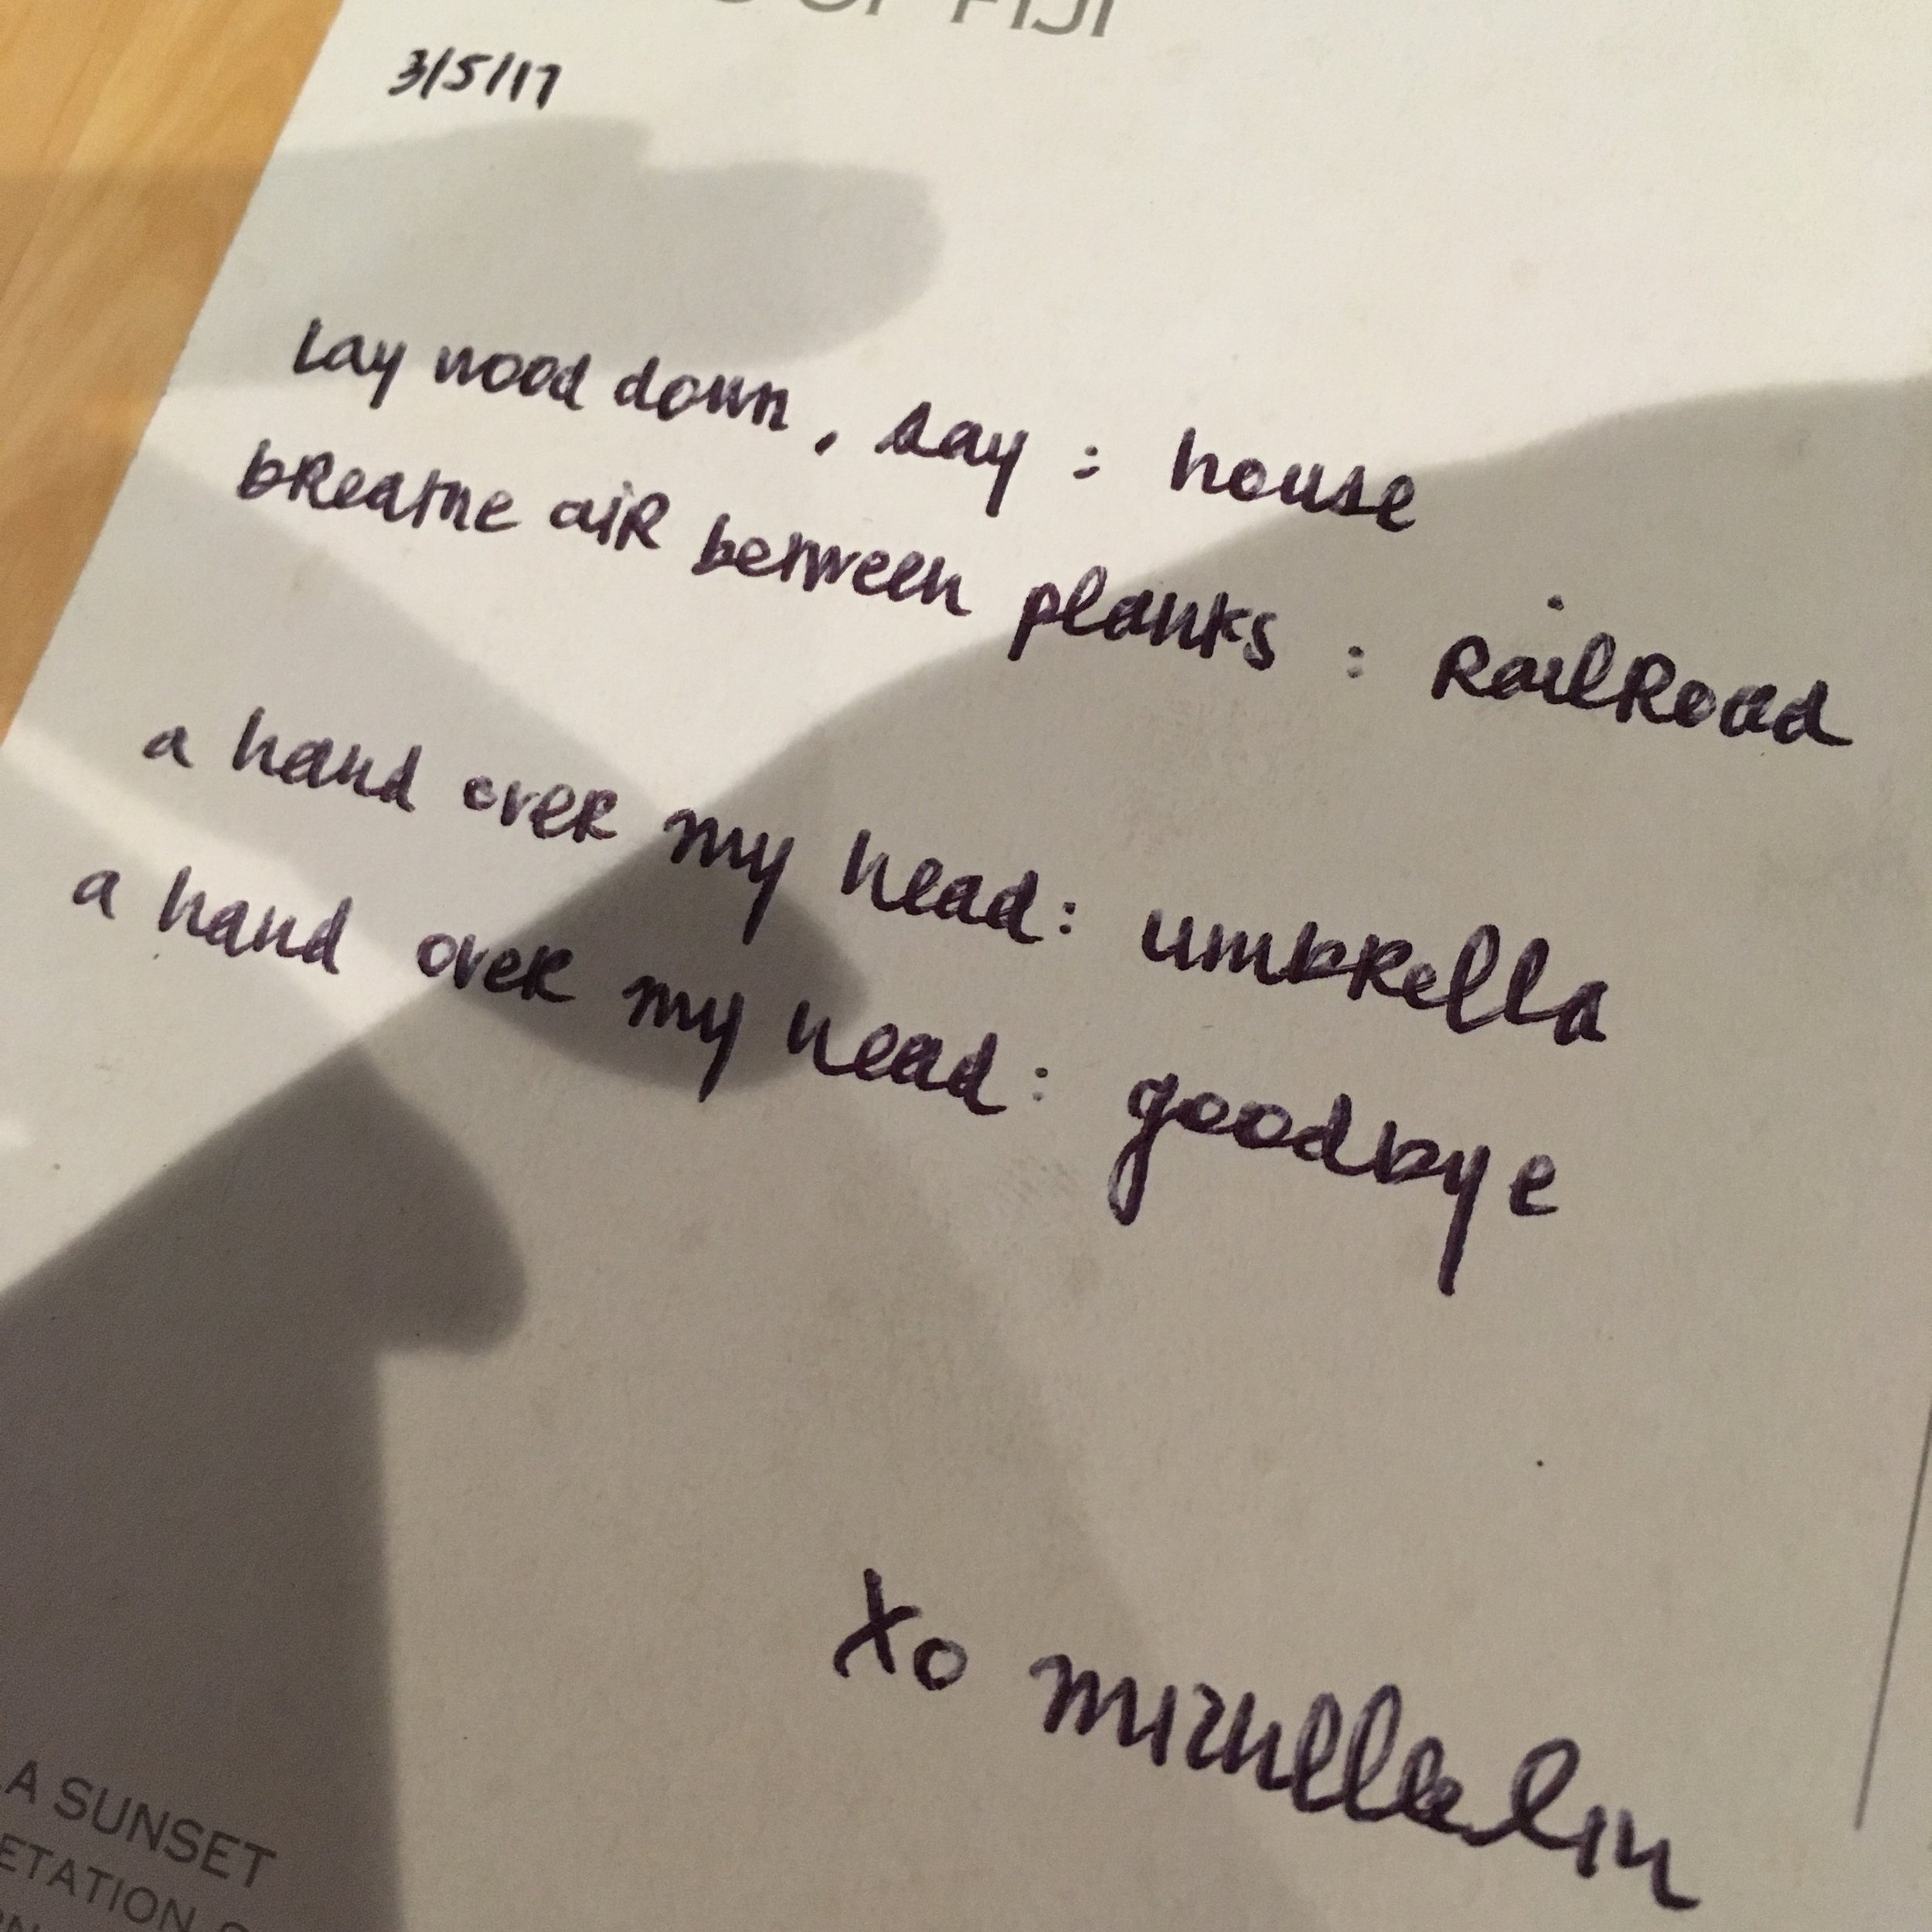 OF FIJI
3/5/17
Lay wood down, say: house
bReathe aiR between planks: RailRoad
a hand oveR my head: umbRella
a hand oveR my head: goodbye
Xo
A SUNSET